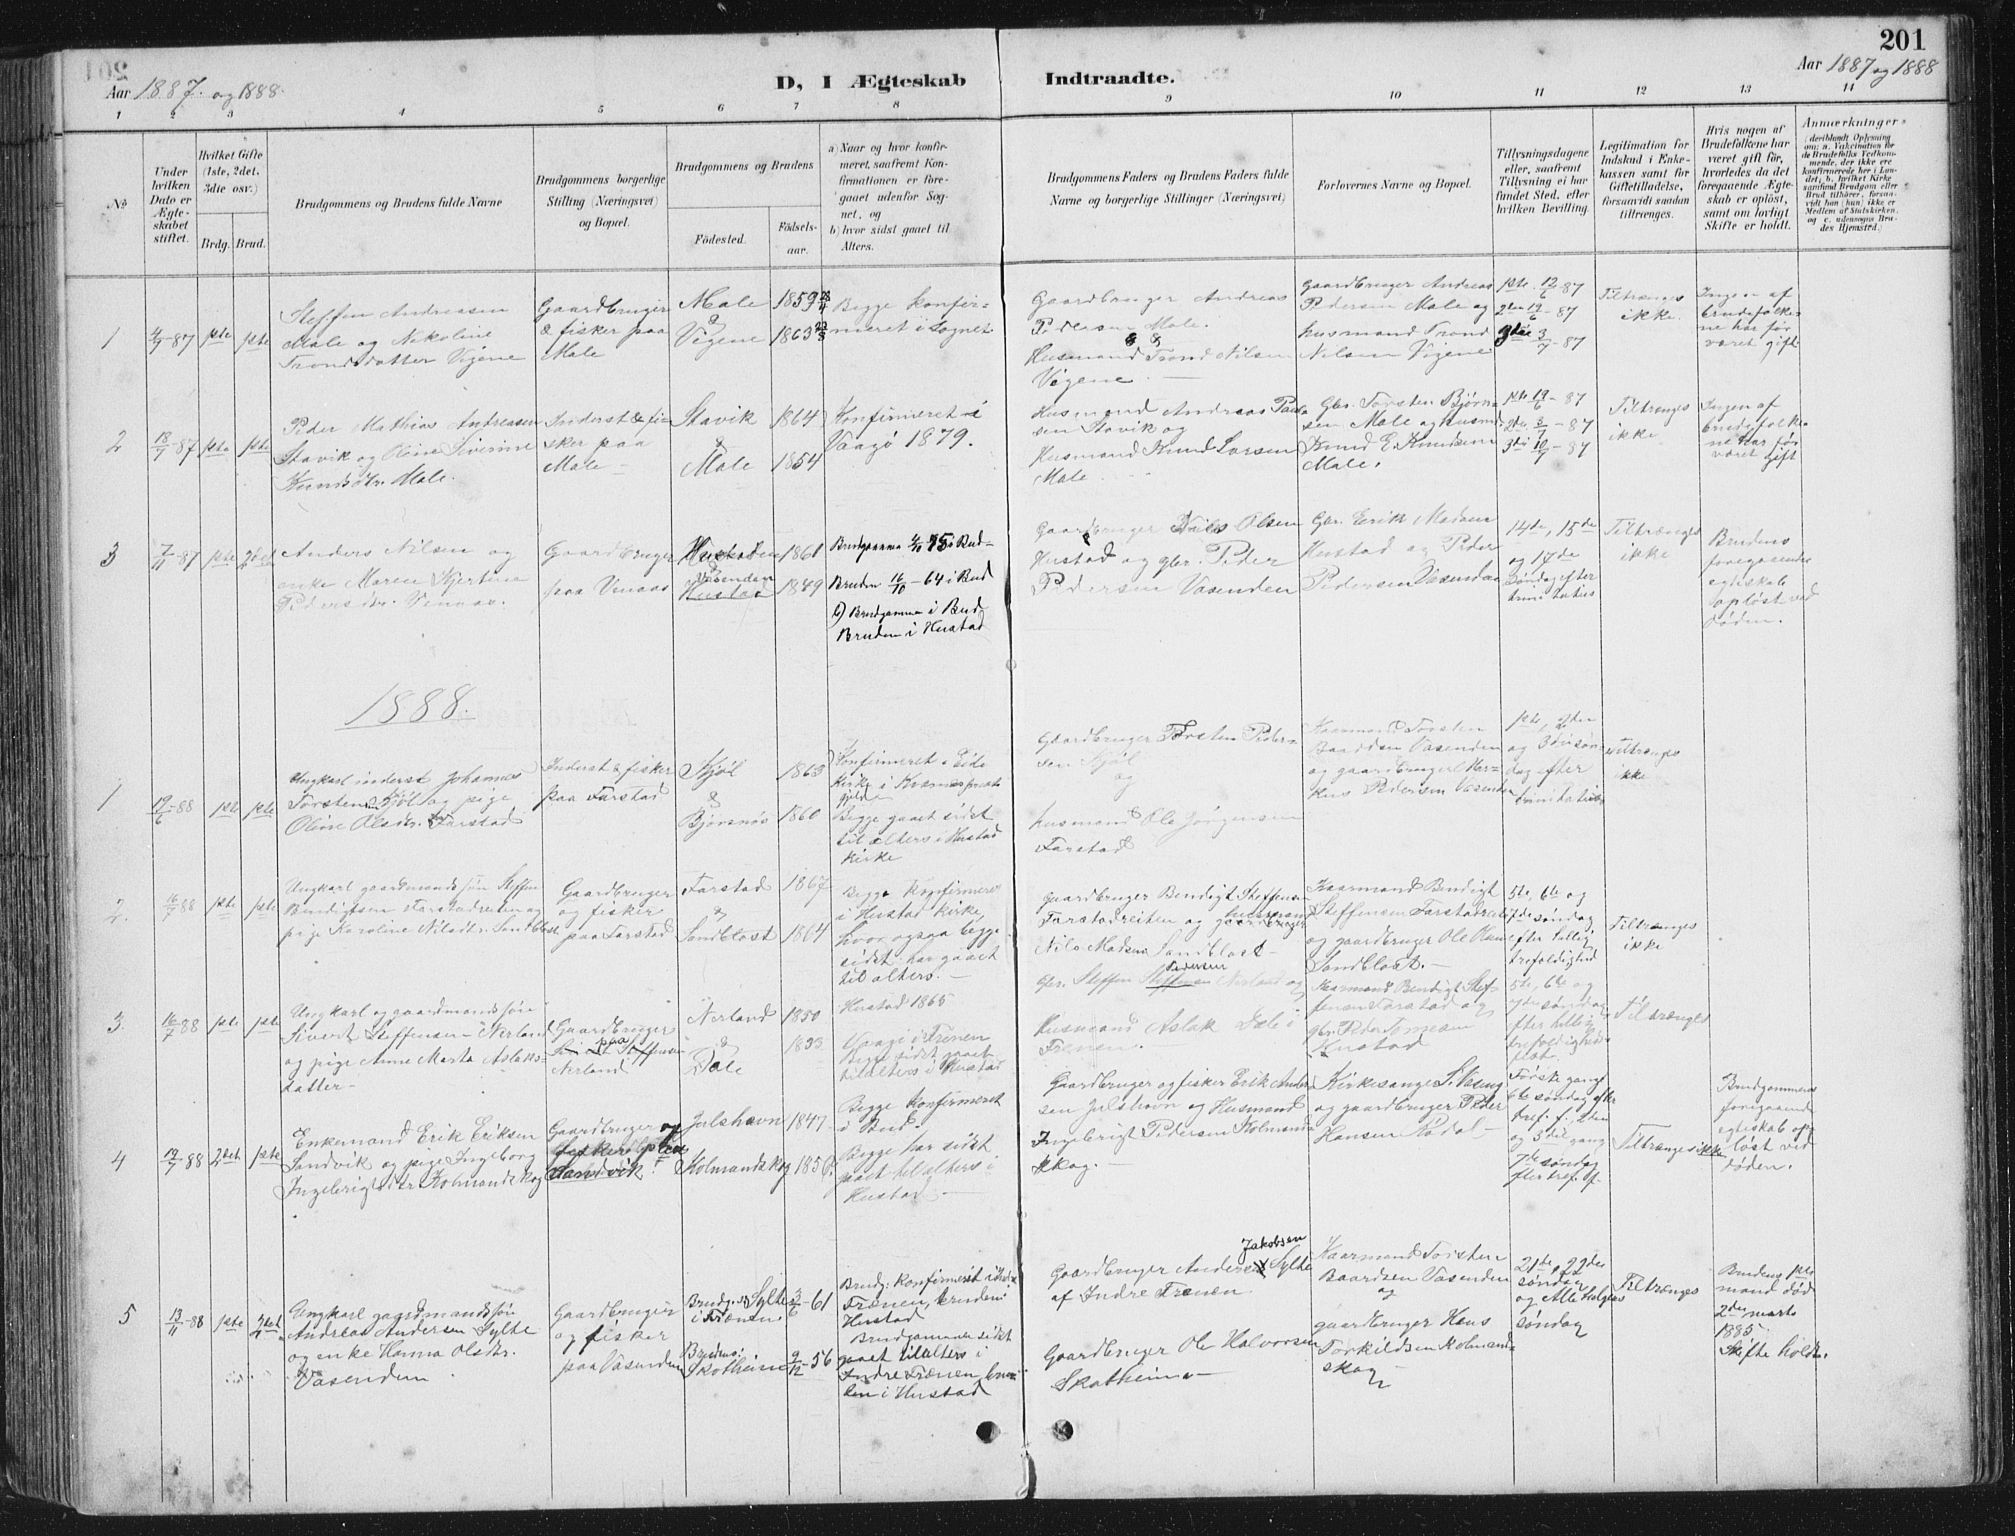 201
Aar 1887 og 1888
D, I Ægteskab Indtraadte.
Aar 1887 og 1888
1 2 3 4 5 6 7 8 9 10 11 12 13 14
No
Under hvilken Dato er Ægteskabet stiftet.
Hvilket Gifte (1ste, 2det, 3dte osv.)
Brdg. Brud.
Brudgommens og Brudens fulde Navne
Brudgommens borgerlige Stilling (Næringsvei) og Bopæl.
Brudgommens og Brudens
Fødested. Fødselsaar.
a) Naar og hvor konfirmeret, saafremt Konfirmationen er foregaaet udenfor Sognet, og
b) hvor sidst gaaet til Alters.
Brudgommens Faders og Brudens Faders fulde Navne og borgerlige Stillinger (Næringsvei)
Forlovernes Navne og Bopæl.
Tillysningsdagene eller, saafremt Tillysning ei har fundet Sted, efter hvilken Bevilling.
Legitimation for Indskud i Enkekassen samt for Giftetilladelse, forsaavidt saadan tiltrænges.
Hvis nogen af Brudefolkene har været gift før, hvorledes da det foregaaende Ægteskab er opløst, samt om lovligt Skifte er holdt.
Anmærkninger
(deriblandt Oplysning om: a. Vakcination for de Brudefolks Vedkommende, der ikke ere konfirmerede her i Landet, b. hvilket Kirkesamfund Brudgom eller Brud tilhører, forsaavidt han (hun) ikke er Medlem af Statskirken, og c. udensogns Brudes Hjemsted.)
1
4/7-87
1ste
1ste
Steffen Andreassen
Male og Nikoline
Trondsdatter Vigene
Gaardbruger
& fisker paa
Male
Male
&
Vigene
1859
1863
Begge konfir-
meret i sognet
Gaardbruger Andreas
Pedersen Male.
&
Husmand Trond Nilsen
Vigene
Gaardbruger Andreas
Pedersen Male og
husmand Trond
Nilsen Vigene
1ste 12/6-87
2den 19/6-87
3die 3/7-87
Tiltrænges
ikke
Ingen af
brudefolke-
ne har før
været gift
2
18/7-87
1ste
1ste
Peder Mathias Andreassen
Stavik og Oline Siverine
Knudsdtr. Male.
Inderst & fi-
sker paa
Male
Stavik
&
Male
1864
1854
Konfirmeret i
Vaagø 1879.
Husmand Andreas Paul-
sen Stavik og
Husmand Knud Larsen
Male
Gbr. Torsten Bjørn-
sen Male og husmd
Knud E. Knudsen
Male.
1ste 19/6-87
2den 3/7-87
3die 10/7-87
Tiltrænges
ikke
Ingen af
brudefolke-
ne har før
været gift
3
7/11-87
1ste
2det
Anders Nilsen og
enke Maren Kjerstina
Pedersdtr. Vinaas.
Gaardbruger
paa Vinaas
Hustaden
&
Vasenden
Hustad
1861
1849
Brudgomme 4/10 75 i Bud-
Bruden 16/10-64 i Bud
b) Brudgomme i Bud
Bruden i Hustad
Gaardbruger Nils Olsen
Hustad og gbr. Peder
Pedersen Vasenden
Gbr. Erik Madsen
Hustad og Peder
Pedersen Vasenden
14de, 15de
og 17de
Søndag efter
trinitatis
Tiltrænges
ikke
Brudens
foregaaende
egteskab
opløst ved
døden.
1888.
1
19/6-88
1ste
1ste
Ungkarl inderst Johannes
Torstensen Skjøl og pige
Oline Olsdtr. Farstad
Inderst & fisker
paa Farstad
Skjøl
&
Bjørsnøs
1863
1860
Konfirmeret i Eide
Kirke i Kvernes præste
gjeld
Begge gaaet sidst
til alters i Hustad
Kirke
Gaardbruger Torsten Peder-
sen Skjøl
og
husmand Ole Jørgensen
Farstad
Kaarmand Torsten
Baardsen Vasenden
og gaardbruger Mar-
kus Pedersen Vasenden
1ste, 2den
og 3die søn-
dag efter
trinitatis
Tiltrænges
ikke
2.
16/7 88
1ste
1ste
Ungkarl gaardmandssøn Steffen
Bendigtsen Farstadreiten og
pige Karoline Nilsdtr. Sandblost
Gaardbruger
og fisker
paa Farstad
Farstad
&
Sandblost
1867
1864
Begge konfirmeret
i Hustad kirke,
hvor ogsaa begge
sidst har gaaet
til alters.
Gaardbruger Bendigt Steffensen
Farstadreiten og husmand
gaardbruger
Nils Madsen Sandblost-
Kaarmand Bendigt
Steffensen Farstadreit
og gaardbruger Ole Han
Sandblost.
5te, 6te og
7de søndag
efter hellig
trefoldighed
Tiltrænges
ikke
3.
16/7 88
1ste
1ste
Ungkarl og gaardmandssøn
Sivert Steffensen Nerland
og pige Anne Marta Aslaks-
datter
Gaardbruger
paa
Nerland
Nerland
&
Dale
1850
Hustad 1865
Vaage i Frænen
Begge sidst gaaet
til alters i Hustad
Gbr. Steffen Steffensen Pedersen Nerland og
Husmand Aslak Dale i
Frænen.
Kaarmand Bendigt Stef-
fensen Farstad og
gbr. Peder Tomesen
Hustad
5te, 6te og
7de søndag
efter hellig
trefoldigheds
fest.
Tiltrænges
4
19/7 88
2det
1ste
Enkemand Erik Eriksen
Sandvik og pige Ingeborg
Ingebrigtsdtr. Kolmandskog
Gaardbruger og
fisker
Sandvik
Julshavn
Kolmandskog
1847
1850
Begge konfirmeret
i Bud.
Begge har sidst
gaaet til alters i
Hustad
Gaardbruger og fisker Erik Ander
sen Julshavn og Husmand
Ingebrigt Pedersen Kolmands
skog.
Kirkesanger S. Vaseng
og gaardbruger Peder
Hansen Rødal
Første gang
6te søndag efter
tref. f., 2den
og 3die gang
7de søndag
efter tref. f.
Tiltrænges ikke
Brudgommens
foregaaende
egteskab op-
løst ved
døden.
5
13/11-88
1ste
2det
Ungkarl gaardmandssøn
Andreas Andersen Sylte
og enke Hanna Olsdtr.
Vasenden
Gaardbruger
og fisker
paa Vasenden
Brudg. Sylte
i Frænen.
Brudens:
Skotheim
3/6-61
9/12-56
Brudg. konfirmeret i Indre
Frænen, bruden i
Hustad
Brudgommen sidst
gaaet til alters i
Indre Frænen, bru-
den i Hustad
Gaardbruger Anders Jakobsen Sylte
af Indre Frænen
Gaardbruger Ole Halvorsen
Skotheim
Kaarmand Torsten
Baardsen Vasenden
og
gaardbruger Hans
Torkildsen Kolmand-
skog
21de, 22de
søndag
og Alle Helgens
søndag
Tiltrænges
Brudens 1ste
mand død
2den marts
1885.
Skifte holdt.